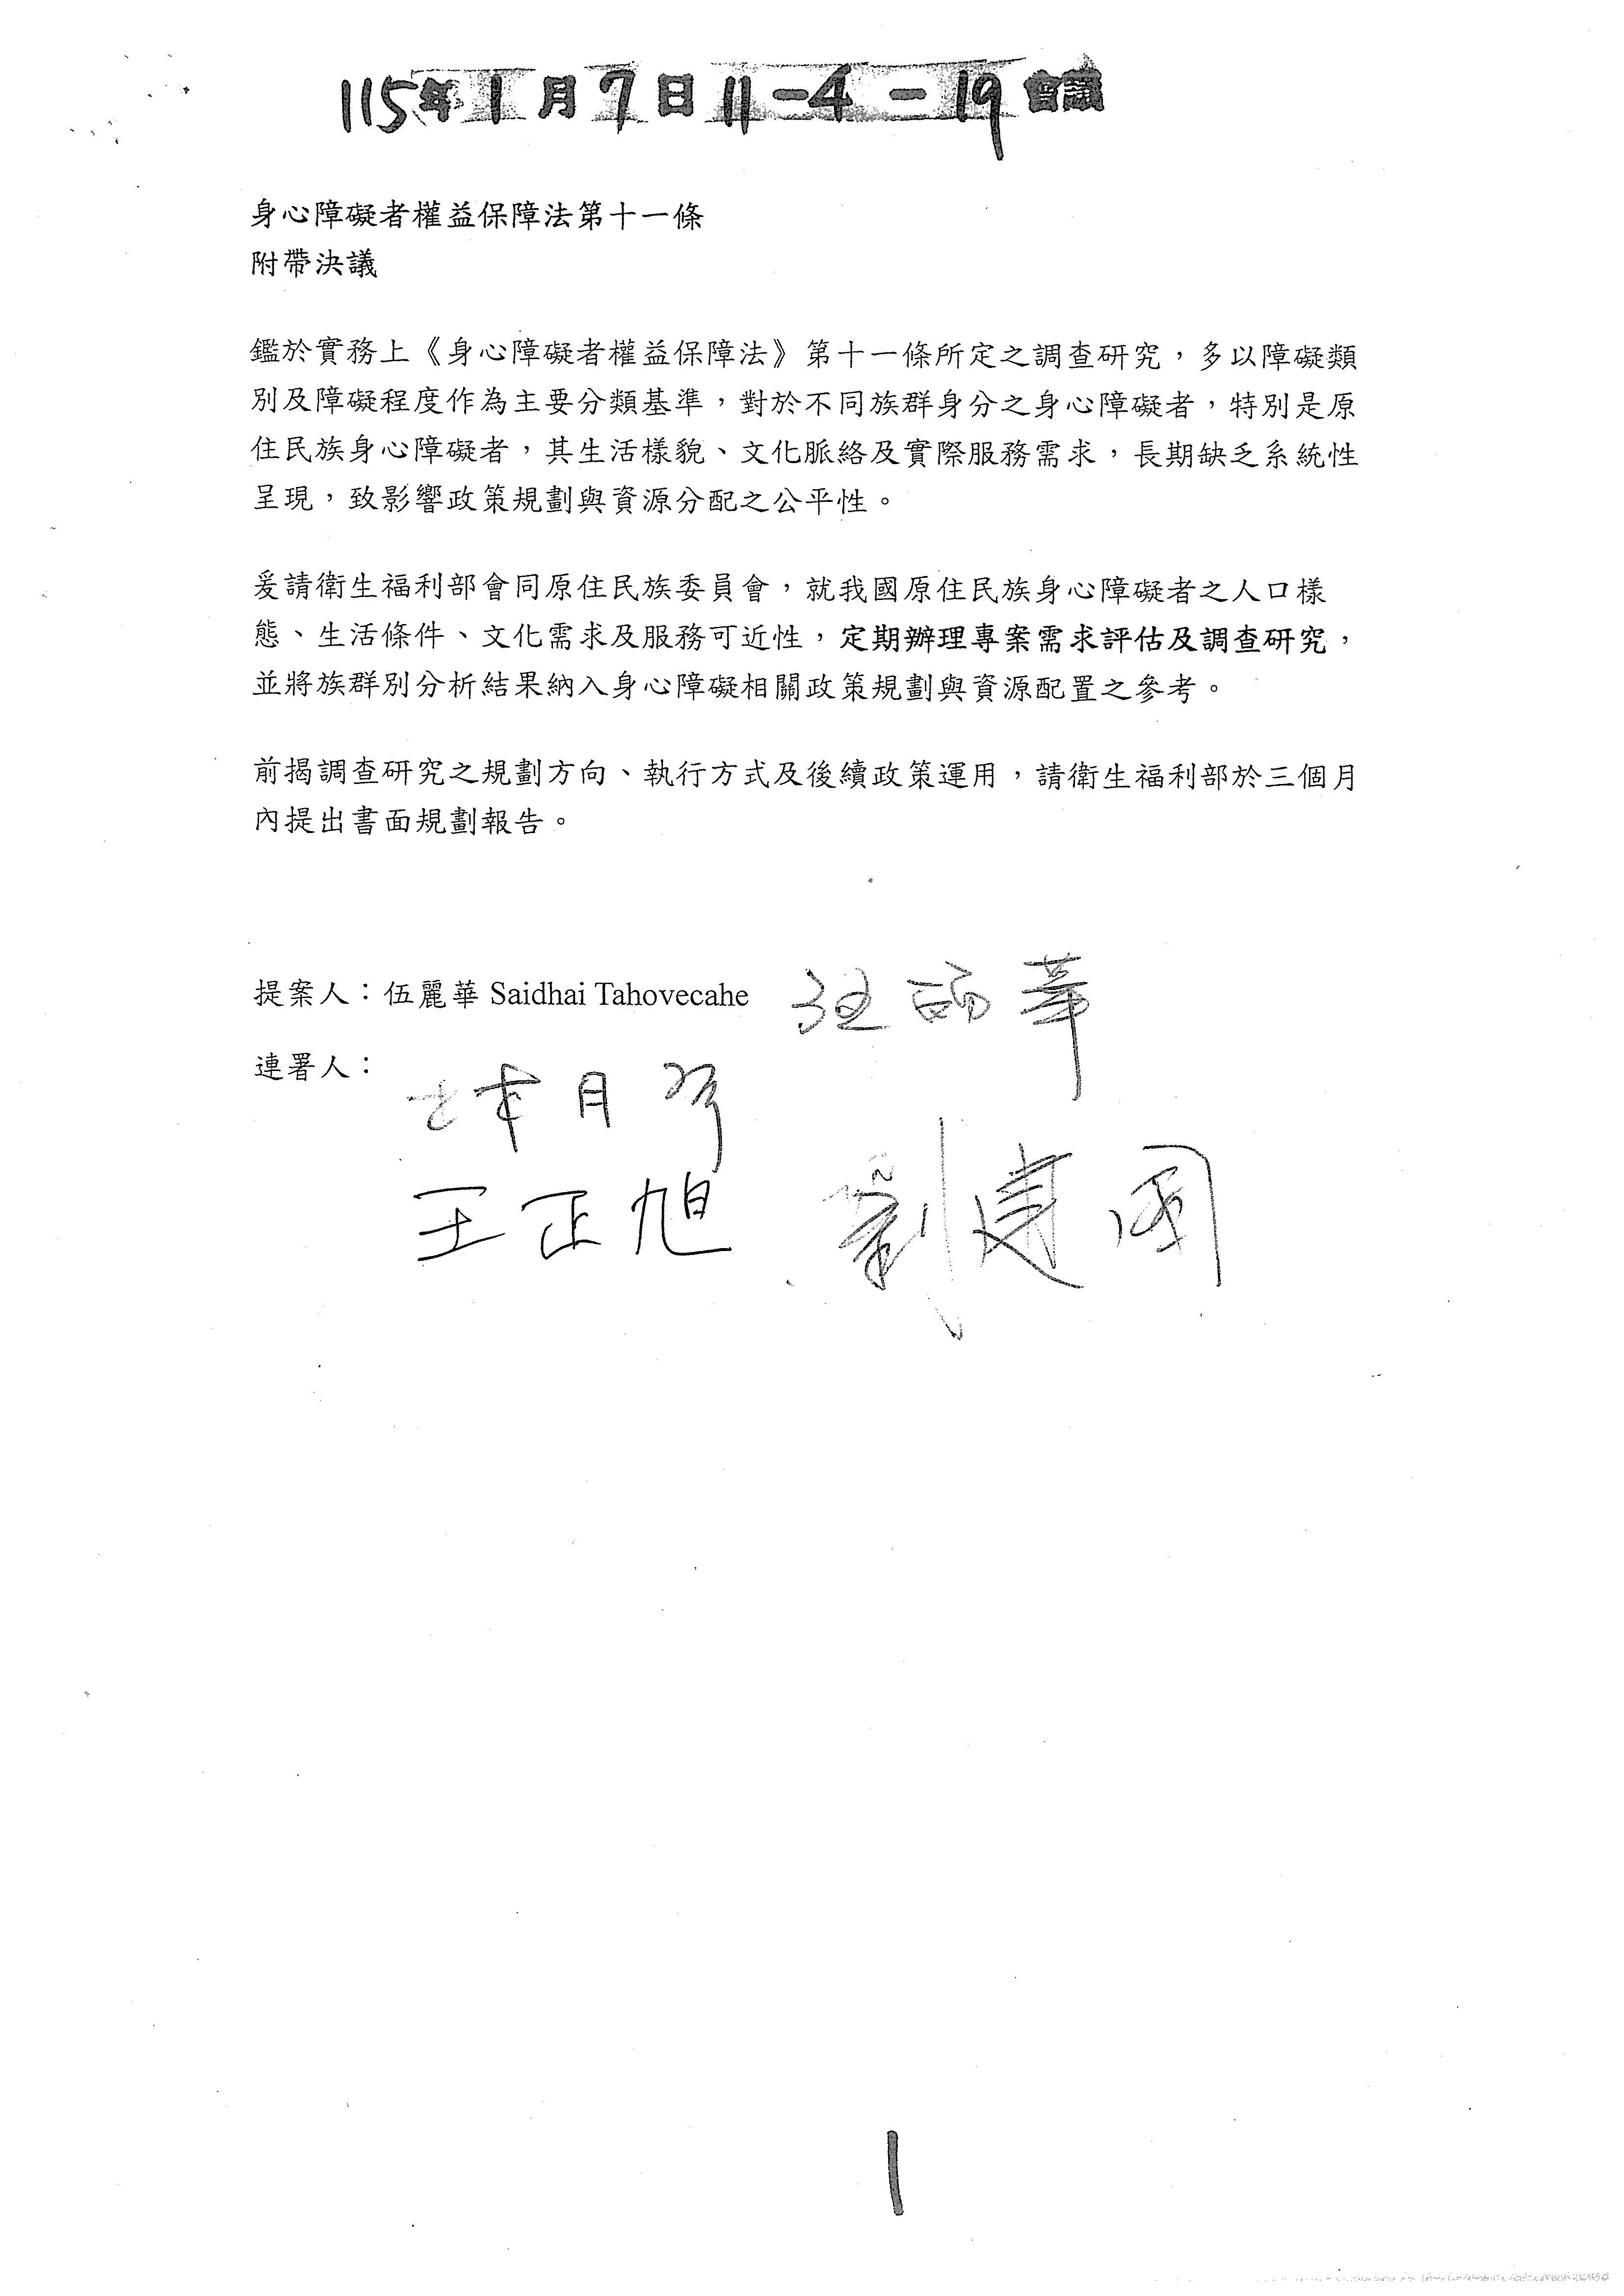 115年1月7日11-4-19會議
身心障礙者權益保障法第十一條
附帶決議
鑑於實務上《身心障礙者權益保障法》第十一條所定之調查研究，多以障礙類
別及障礙程度作為主要分類基準，對於不同族群身分之身心障礙者，特別是原
住民族身心障礙者，其生活樣貌、文化脈絡及實際服務需求，長期缺乏系統性
呈現，致影響政策規劃與資源分配之公平性。
爰請衛生福利部會同原住民族委員會，就我國原住民族身心障礙者之人口樣
態、生活條件、文化需求及服務可近性，定期辦理專案需求評估及調查研究，
並將族群別分析結果納入身心障礙相關政策規劃與資源配置之參考。
前揭調查研究之規劃方向、執行方式及後續政策運用，請衛生福利部於三個月
內提出書面規劃報告。
提案人：伍麗華 Saidhai Tahovecahe 伍麗華
連署人：
王正旭 劉建國
1